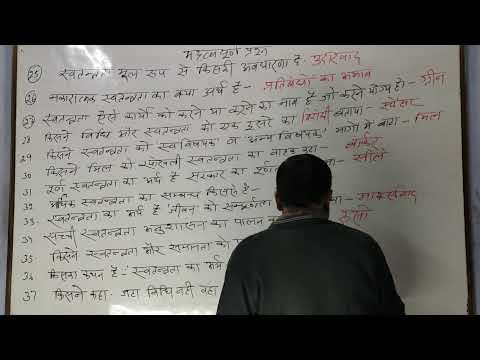 महत्वपूर्ण प्रश्न
25 स्वतन्त्रता मूल रूप से किसकी अवधारणा है- उदारवाद
26 नकारात्मक स्वतन्त्रता का क्या अर्थ है- प्रतिबंधों का अभाव
27 स्वतन्त्रता ऐसे कार्यों को करने या करने का नाम है जो करने योग्य हो- ग्रीन
28 किसने विधि और स्वतन्त्रता को एक दूसरे का विरोधी बताया- स्पेंसर
29 किसने स्वतन्त्रता को स्व विषयक व अन्य विषयक भागों में बांटा- मिल
30 किसने मिल को खोखली स्वतन्त्रता का कहा- बार्कर
31 पूर्ण स्वतन्त्रता का अर्थ है सरकार का सीले
32 आर्थिक स्वतन्त्रता का सम्बन्ध किससे है- मार्क्सवाद
33 स्वतन्त्रता का अर्थ है जीवन की
34 सच्ची स्वतन्त्रता अनुशासन का पालन रूसो
35 किसने स्वतन्त्रता और समानता को
36 किसका कथन है- स्वतन्त्रता का अर्थ
37 किसने कहा- जहां विधि नहीं वहां